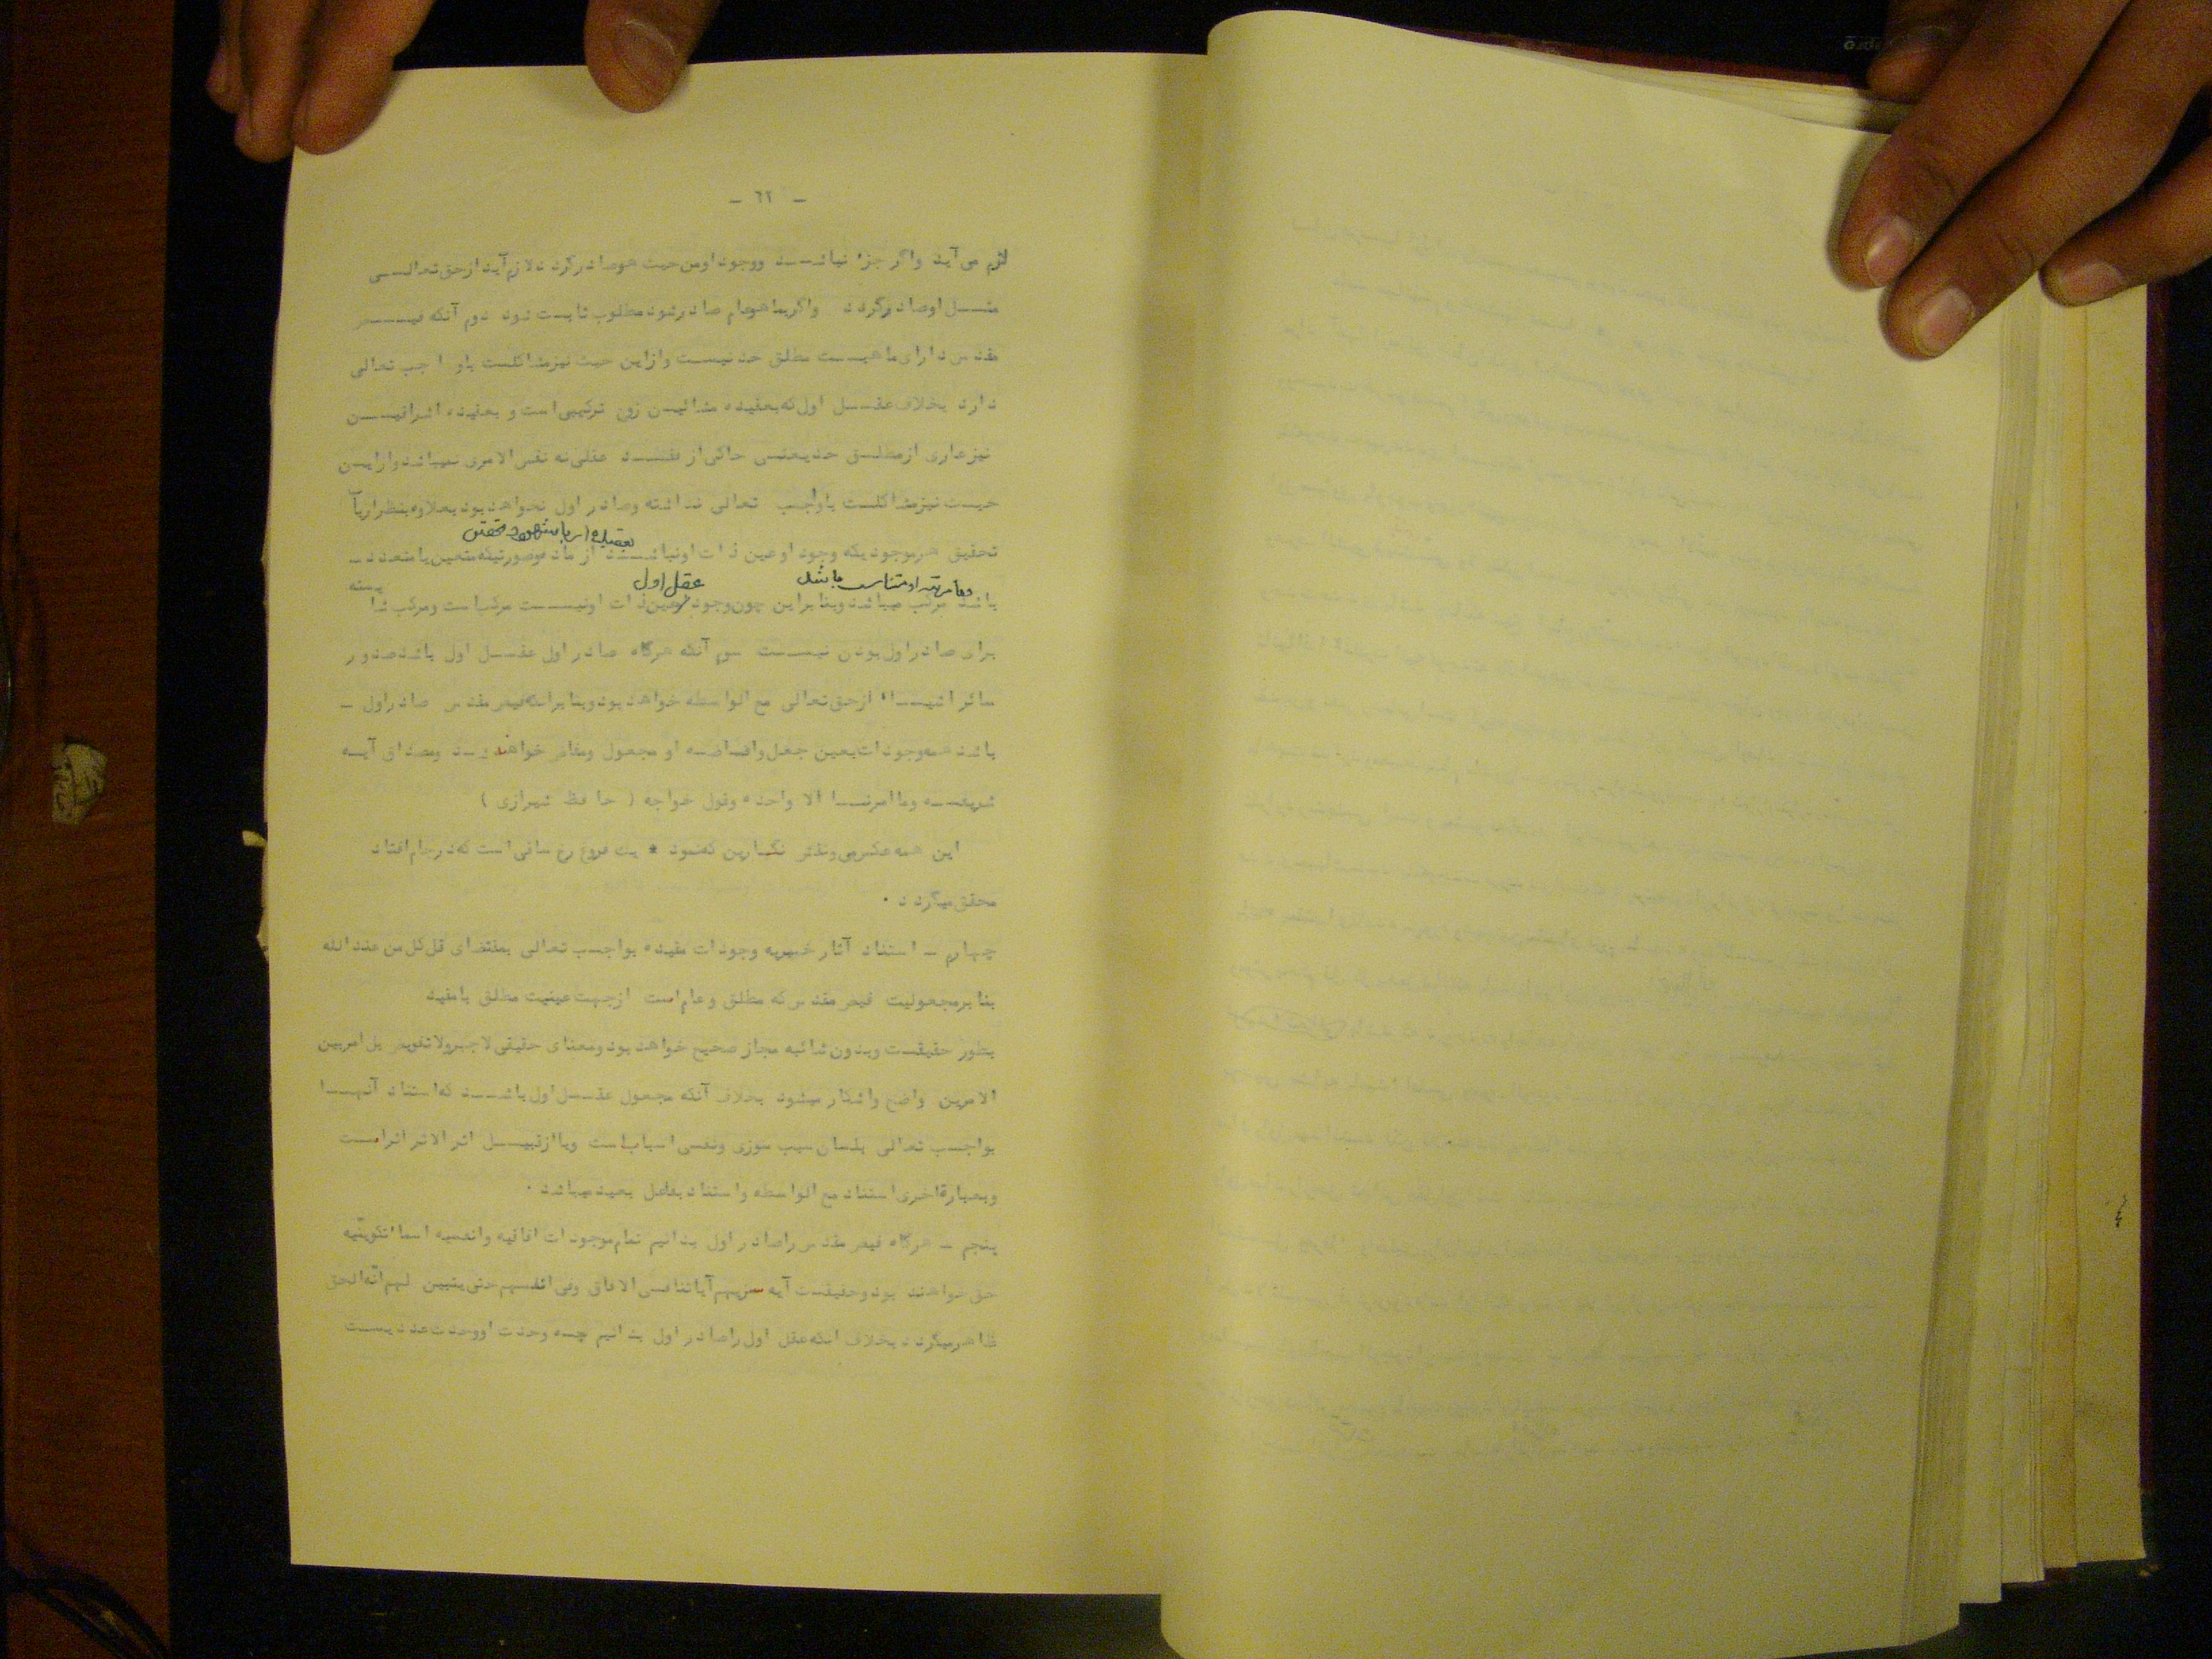 - ٦٢ -
لازم می آید واگر جزء نباشد ووجود اومن حیث هوصادر گردد لازم آید ازحق تعالی
مثل اوصادر گردد واگربماهوعام صادرشود مطلوب ثابت شود دوم آنکه فیض
مقدس دارای ماهیت مطلق حد نیست وازاین حیث نیزمشاکلت باواجب تعالی
دارد بخلاف عقل اول که بعقیده مشائین زوج ترکیبی است و بعقیده اشراقیین
نیزعاری ازمطلق حد یعنی حاکی از فقد عقلی نه نفس الامری نمیباشد وازاین
حیث نیزمشاکلت باواجب تعالی نداشته وصادر اول نخواهد بود بعلاوه بنظر ارباب
بعقیده ارباب شهود و تحقق
تحقیق هرموجودیکه وجود او عین ذات اونباشد از ماده وصورتیکه متعین یا متعدد
ومرتبه او متناسب باشد عقل اول
باشد مرکب میباشد وبنابراین چون وجود عین ذات اونیست مرکب است ومرکب شایسته
برای صادراول بودن نیست سوم آنکه هرگاه صادر اول عقل اول باشد صدور
سائر اشیاء ازحق تعالی مع الواسطه خواهد بود وبنابراینکه فیض مقدس صادراول -
باشد همه وجودات بعین جعل وافاضه او مجعول ومفاض خواهند شد ومصداق آیه
شریفه وما امرنا الا واحده وقول خواجه ( حافظ شیرازی )
این همه عکس می ونقش نگارین که نمود * یک فروغ رخ ساقی است که درجام افتاد
محقق میگردد .
چهارم - استناد آثار خیریه وجودات مقیده بواجب تعالی بمقتضای قل کل من عندالله
بنابرمجعولیت فیض مقدس که مطلق وعام است ازجهت عینیت مطلق بامقید
بطور حقیقت وبدون شائبه مجاز صحیح خواهد بود ومعنای حقیقی لاجبرولاتفویض بل امربین
الامرین واضح واشکار میشود بخلاف آنکه مجعول عقل اول باشد که استناد آنها
بواجب تعالی بلسان سبب سوزی ونفی اسباب است ویا ازقبیل اثر الاثر اثراست
وبعبارة اخری استناد مع الواسطه واستناد بفاعل بعید میباشد .
پنجم - هرگاه فیض مقدس راصادر اول بدانیم تمام موجودات افاقیه وانفسیه اسماء تکوینیه
حق خواهند بود وحقیقت آیه سنریهم آیاتنا فی الافاق وفی انفسهم حتی یتبین لهم انّه الحق
ظاهرمیگردد بخلاف اینکه عقل اول راصادر اول بدانیم چه وحدت او وحدت عددیست